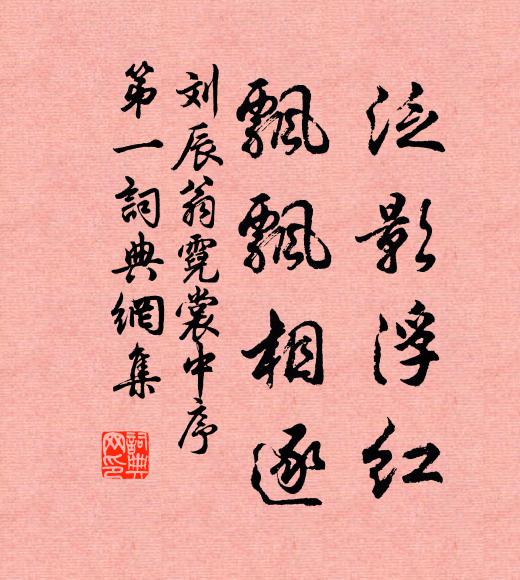 泛影浮红
飘飘相逐
刘辰翁霓裳中序
第一詞典網集
詞典网印